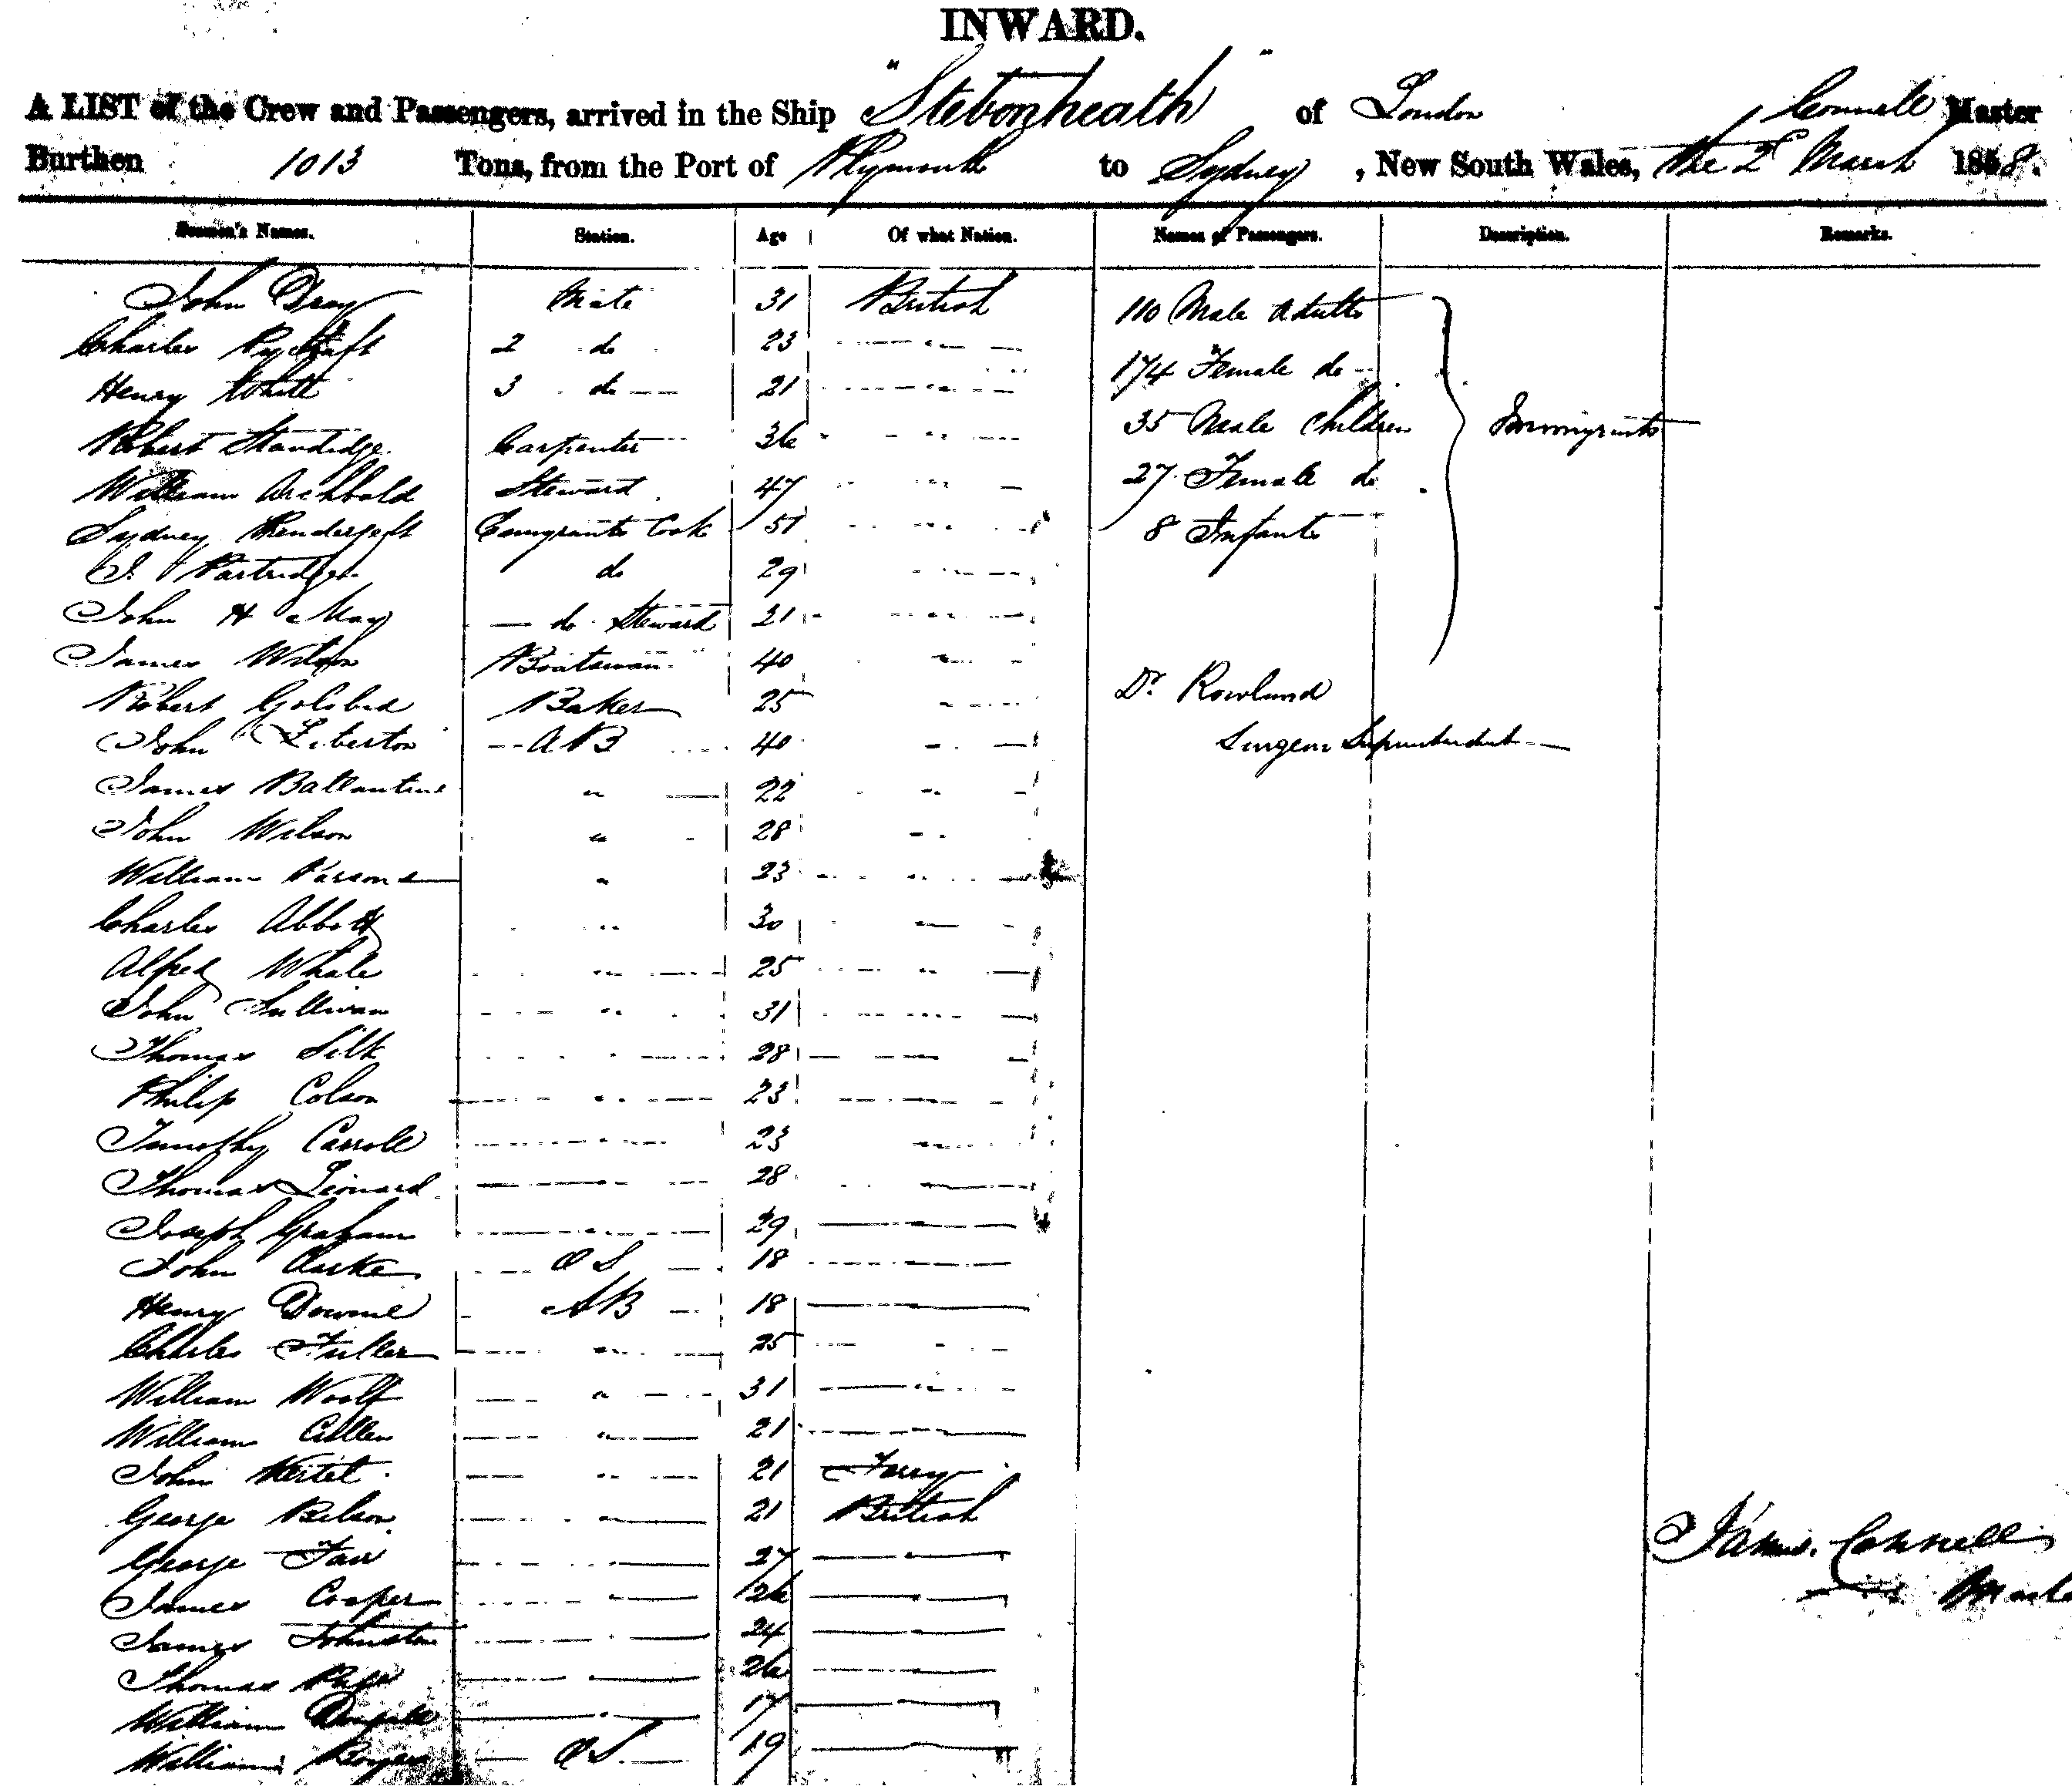 INWARD.
A LIST of the Crew and Passengers, arrived in the Ship "Stebonheath" of London Connell Master
Burthen 1013 Tons, from the Port of Plymouth to Sydney, New South Wales, the 2d March 1858.
Seamen's Names. Station. Age Of what Nation. Names of Passengers. Description. Remarks.
John Dray Mate 31 British 110 Male Adults
Charles 2 do 23 174 Female do
Henry White 3 do 21 35 Male Children Immigrants
Robert Standidge Carpenter 36 27 Female do
William Archbald Steward 47 8 Infants
Sydney Emigrants Cook 51
J. Partridge do 29
John H May do Steward 21
James Wilson Boatswain 40
Robert Baker 25 Dr. Rowland
John Liberton AB 40 Surgeon Superintendent
James Ballantine " 22
John Wilson " 28
William Parsons " 23
Charles Abbott " 30
Alfred Whale " 25
John Sullivan " 31
Thomas Silk " 28
Philip Colson " 23
Timothy Carroll " 23
Thomas Leonard " 28
Joseph Graham " 29
John Clarke OS 18
Henry Downie AB 18
Charles Fuller " 25
William Woolf " 31
William Cullen " 21
John 21
George Belson " 21 British
George Farr " 27
James Cooper " 26
James Johnston " 24
Thomas Page " 26
William 17
William Roger OS 19
James Connell
Master